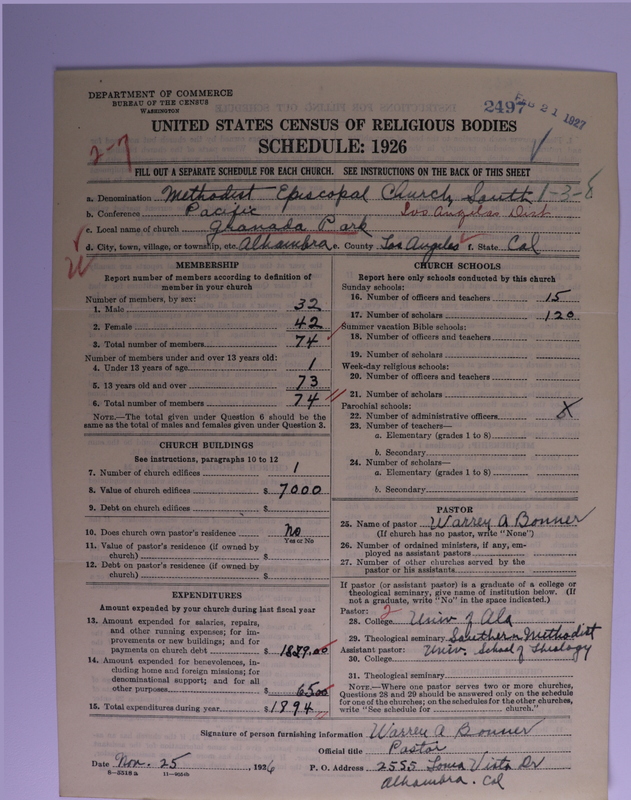 DEPARTMENT OF COMMERCE
BUREAU OF THE CENSUS
WASHINGTON
2497
FEB 21 1927
UNITED STATES CENSUS OF RELIGIOUS BODIES
SCHEDULE: 1926
2-7
FILL OUT A SEPARATE SCHEDULE FOR EACH CHURCH. SEE INSTRUCTIONS ON THE BACK OF THIS SHEET
a. Denomination Methodist Episcopal Church, South 1-3-8
b. Conference Pacific Los Angeles Dist
c. Local name of church Granada Park
d. City, town, village, or township, etc. Alhambra e. County Los Angeles f. State Cal
MEMBERSHIP
Report number of members according to definition of member in your church
Number of members, by sex:
1. Male 32
2. Female 42
3. Total number of members 74
Number of members under and over 13 years old:
4. Under 13 years of age 1
5. 13 years old and over 73
6. Total number of members 74
NOTE.—The total given under Question 6 should be the same as the total of males and females given under Question 3.
CHURCH BUILDINGS
See instructions, paragraphs 10 to 12
7. Number of church edifices 1
8. Value of church edifices $ 7000
9. Debt on church edifices $
10. Does church own pastor's residence No
Yes or No
11. Value of pastor's residence (if owned by church) $
12. Debt on pastor's residence (if owned by church) $
EXPENDITURES
Amount expended by your church during last fiscal year
13. Amount expended for salaries, repairs, and other running expenses; for improvements or new building; and for payments on church debt $ 1829.00
14. Amount expended for benevolences, including home and foreign missions; for denominational support; and for all other purposes $ 65.00
15. Total expenditures during year $ 1894
CHURCH SCHOOLS
Report here only schools conducted by this church
Sunday schools:
16. Number of officers and teachers 15
17. Number of scholars 120
Summer vacation Bible schools:
18. Number of officers and teachers
19. Number of scholars
Week-day religious schools:
20. Number of officers and teachers
21. Number of scholars
Parochial schools:
22. Number of administrative officers X
23. Number of teachers—
a. Elementary (grades 1 to 8)
b. Secondary
24. Number of scholars—
a. Elementary (grades 1 to 8)
b. Secondary
PASTOR
25. Name of pastor Warren A Bonner
(If church has no pastor, write "None")
26. Number of ordained ministers, if any, employed as assistant pastors
27. Number of other churches served by the pastor or his assistants
If pastor (or assistant pastor) is a graduate of a college or theological seminary, give name of institution below. (If not a graduate, write "No" in the space indicated.)
Pastor: 2
28. College Univ of Ala
29. Theological seminary Southern Methodist
Assistant pastor: Univ. School of Theology
30. College
31. Theological seminary
NOTE.—Where one pastor serves two or more churches, Questions 28 and 29 should be answered only on the schedule for one of the churches; on the schedules for the other churches, write "See schedule for church."
Signature of person furnishing information Warren A Bonner
Official title Pastor
Date Nov. 25, 1926 P. O. Address 2555 Loma Vista Dr
Alhambra. Cal
8—5318 a 11—9554